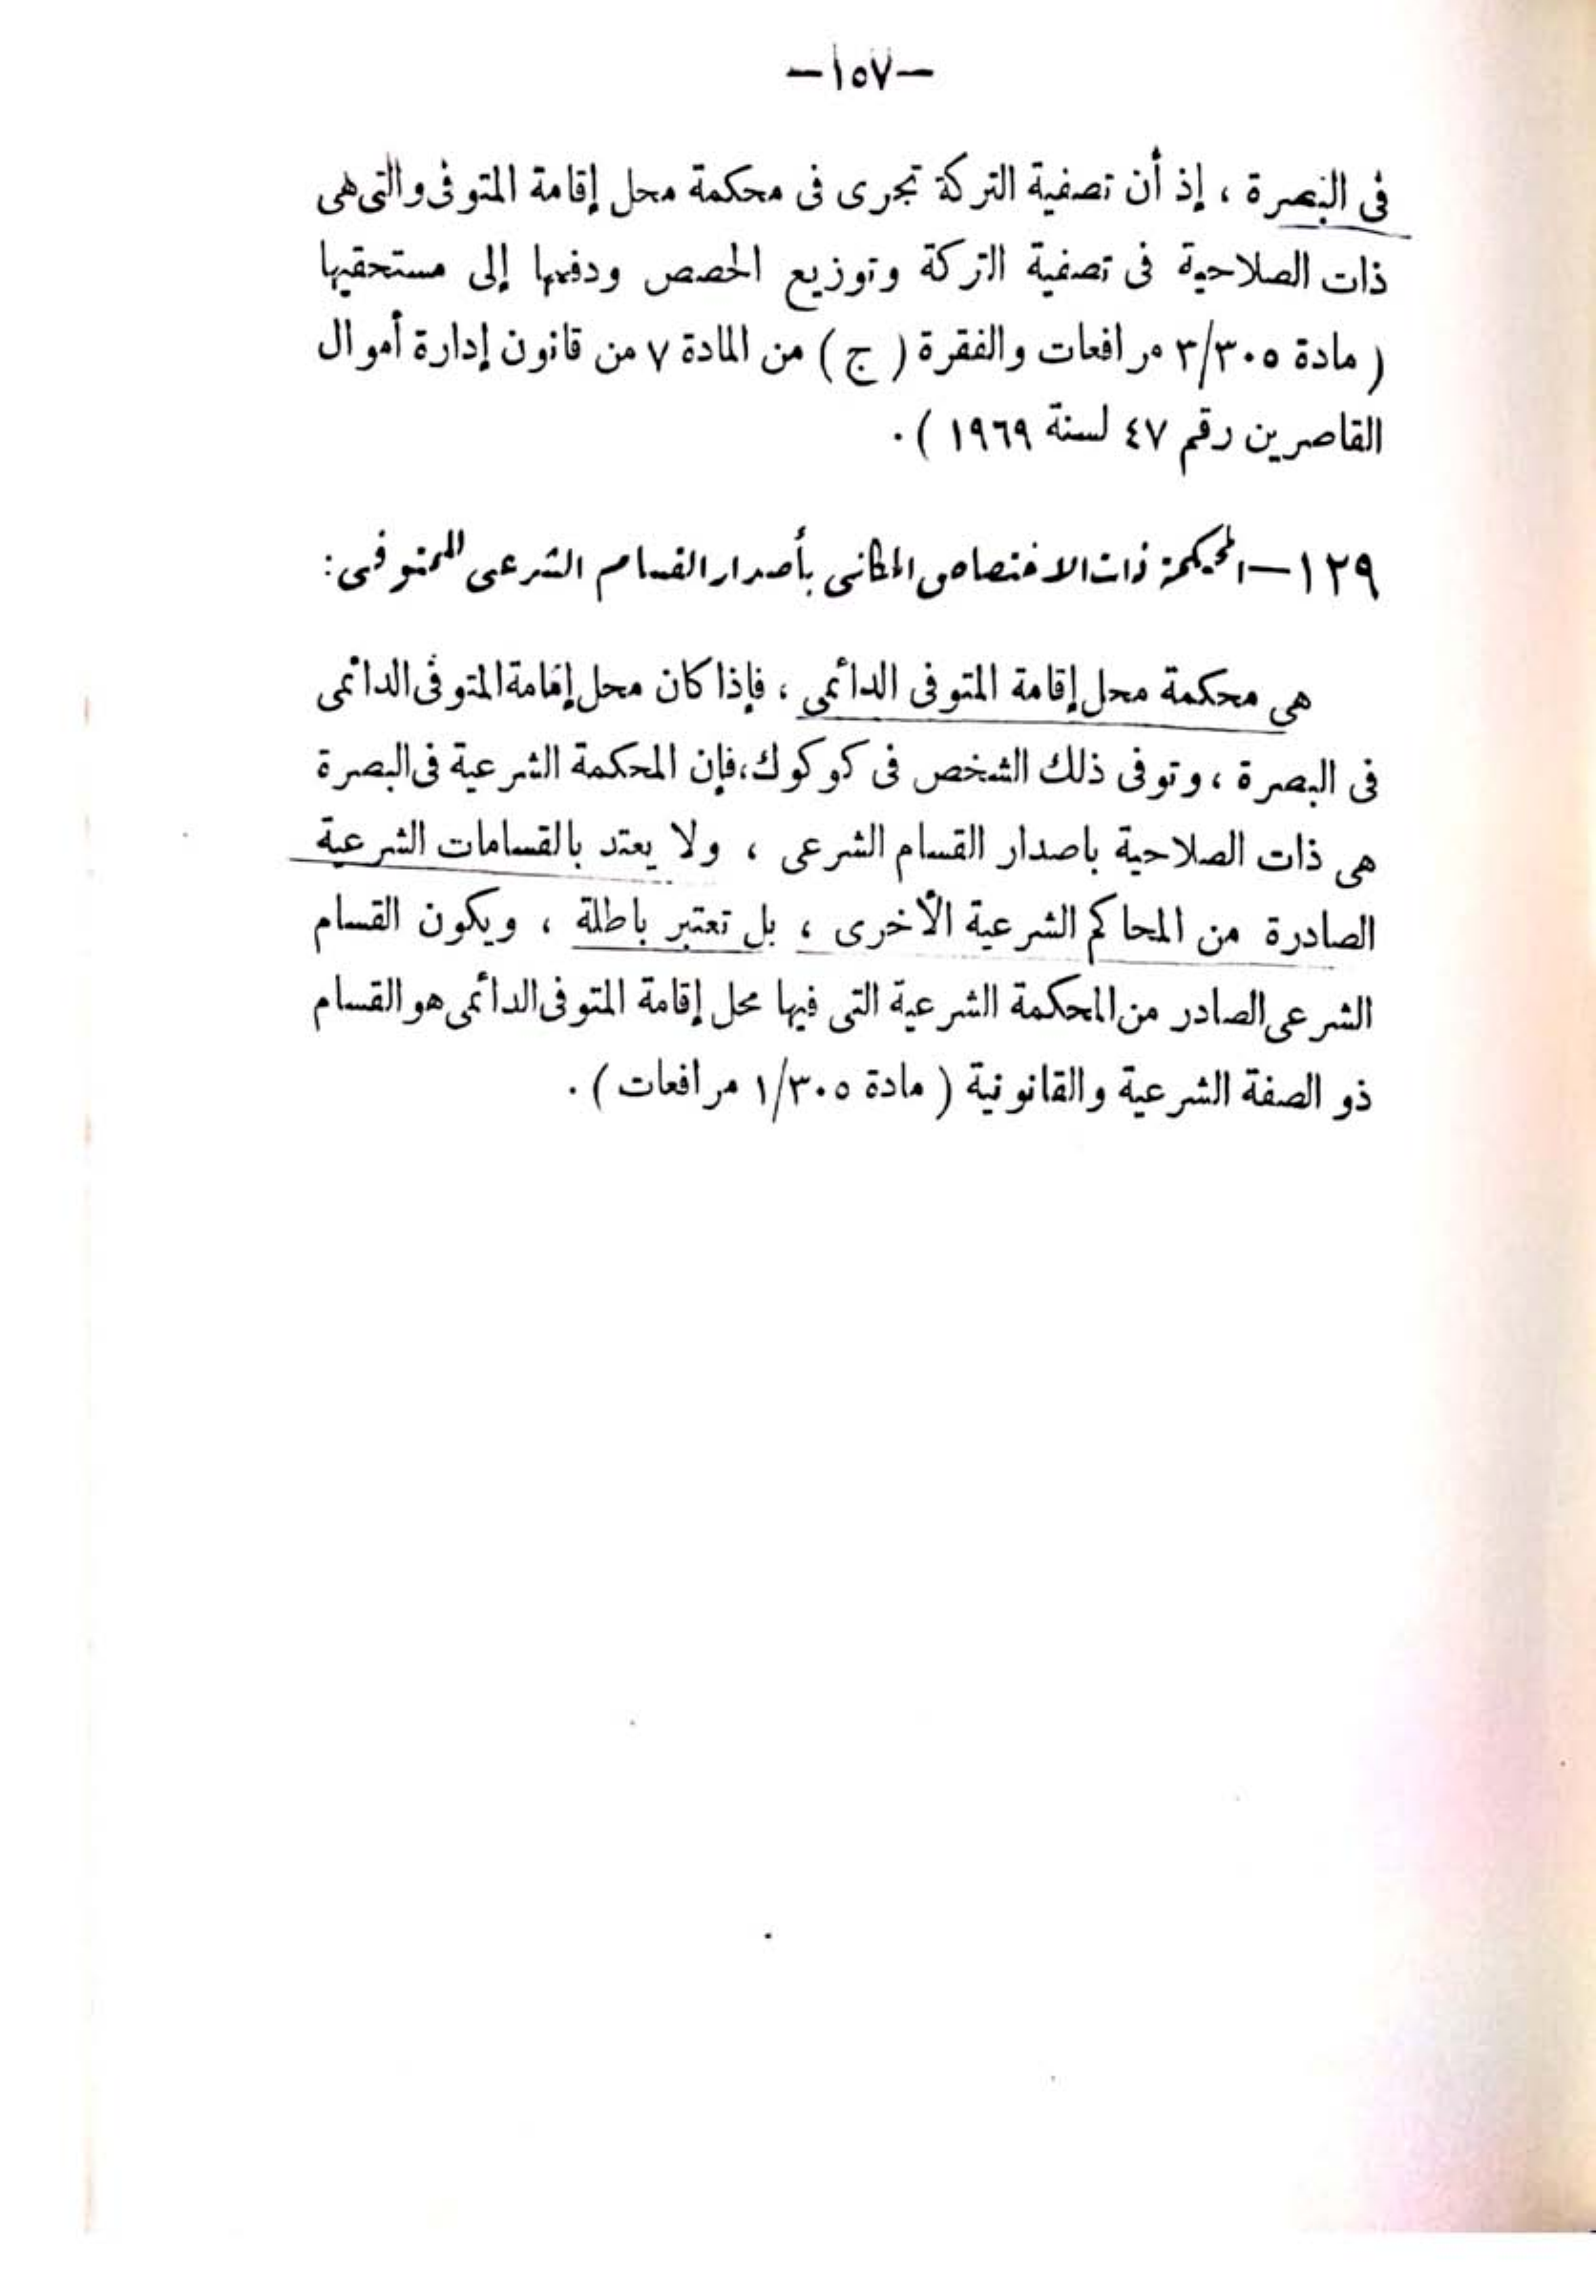 —١٥٧—
فى البصرة ، إذ أن تصفية التركة تجرى فى محكمة محل إقامة المتوفى والتى هى
ذات الصلاحية فى تصفية التركة وتوزيع الحصص ودفعها إلى مستحقيها
( مادة ٣/٣٠٥ مرافعات والفقرة ( ج ) من المادة ٧ من قانون إدارة أموال
القاصرين رقم ٤٧ لسنة ١٩٦٩ ) .
١٢٩ — المحكمة ذات الاختصاص المكانى بأصدار القسام الشرعى للمتوفى :
هى محكمة محل إقامة المتوفى الدائمى ، فإذا كان محل إقامة المتوفى الدائمى
فى البصرة ، وتوفى ذلك الشخص فى كوكوك ، فإن المحكمة الشرعية فى البصرة
هى ذات الصلاحية باصدار القسام الشرعى ، ولا يعتد بالقسامات الشرعية
الصادرة من المحاكم الشرعية الأخرى ، بل تعتبر باطلة ، ويكون القسام
الشرعى الصادر من المحكمة الشرعية التى فيها محل إقامة المتوفى الدائمى هو القسام
ذو الصفة الشرعية والقانونية ( مادة ١/٣٠٥ مرافعات ) .